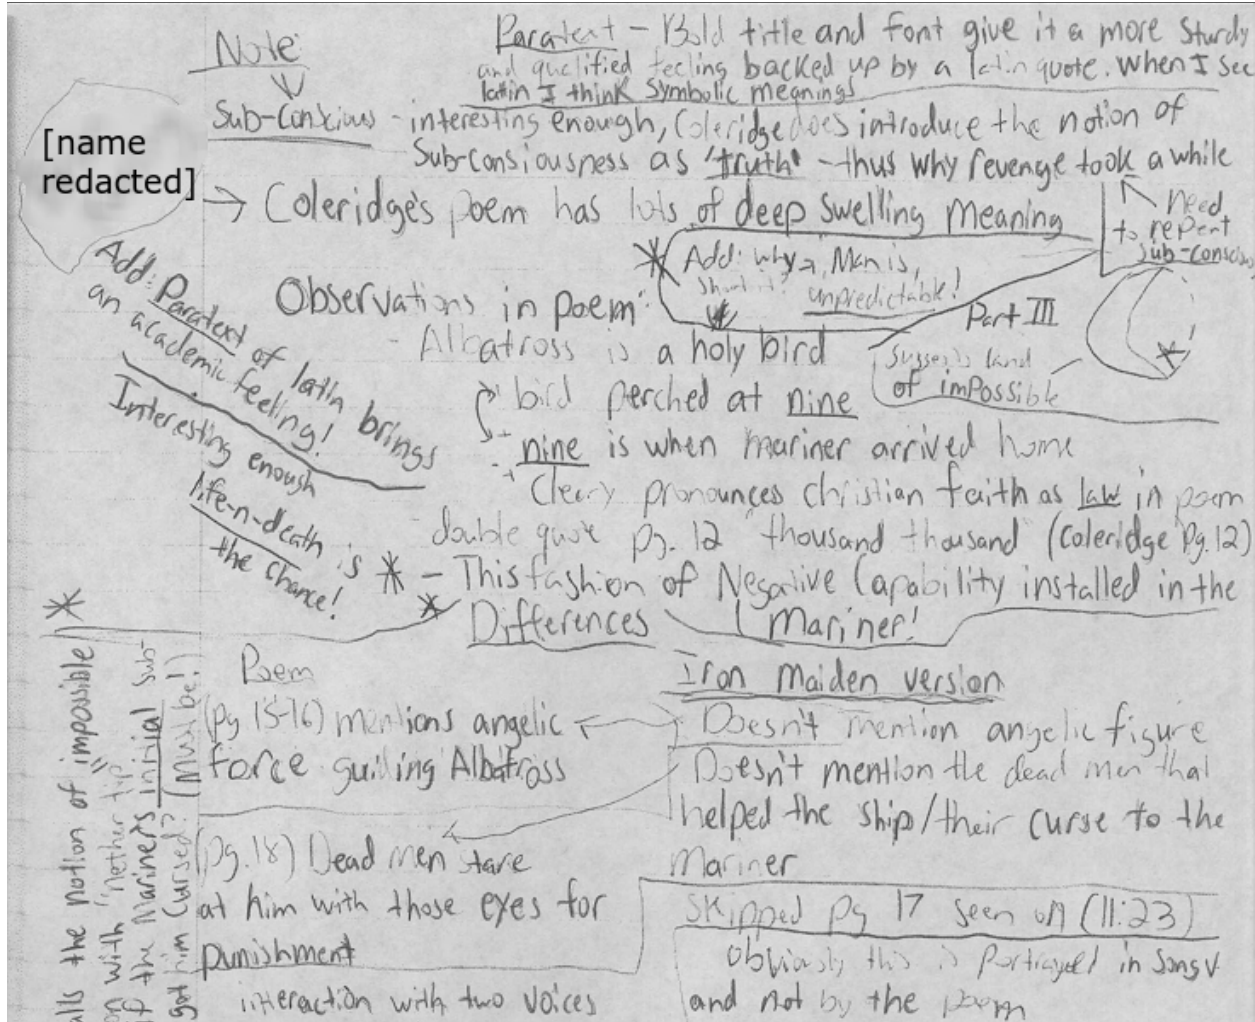 Note
Paratext - Bold title and font give it a more sturdy
and qualified feeling backed up by a latin quote. When I see
latin I think symbolic meanings
[name
redacted]
Sub-Conscious - interesting enough, Coleridge does introduce the notion of
Sub-consiousness as "truth" - thus why revenge took a while
Need
to repent
sub-conscious
→ Coleridge's poem has lots of deep swelling meaning
Add: why →, Man is,
unpredictable!
Add: Paratext of latin brings
an academic feeling!
Interesting enough
life-n-death is
the chance!
Observations in poem:
Part III
- Albatross is a holy bird
Suggests land
of impossible
bird perched at nine
nine is when mariner arrived home
Clearly pronounces christian faith as law in poem
double quote pg. 12 "thousand thousand" (Coleridge Pg. 12)
- This fashion of Negative Capability installed in the
Mariner!
Differences
Poem
(pg 15-16) mentions angelic
force guiding Albatross
(pg. 18) Dead men stare
at him with those eyes for
punishment
interaction with two voices
Iron Maiden version
Doesn't mention angelic figure
Doesn't mention the dead men that
helped the ship/their curse to the
Mariner
Skipped pg 17 seen on (11:23)
obviously this is portrayed in song
and not by the poem
alls the notion of impossible
on with "nother tip"
if the Mariners initial sub-
got him cursed? (Must be!)